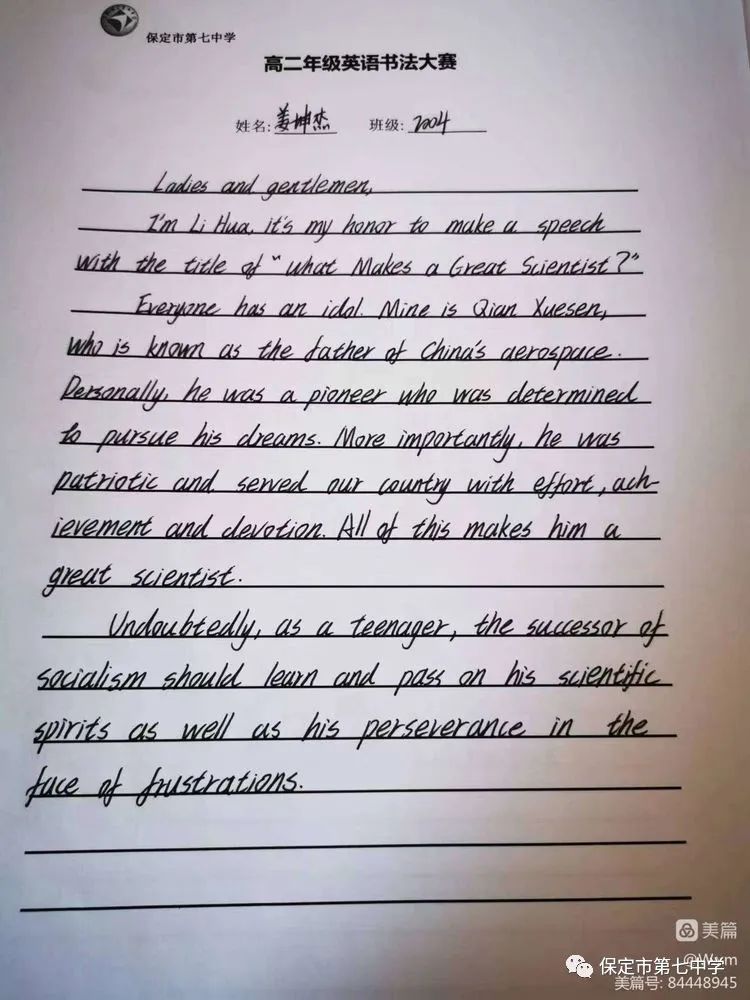 保定市第七中学
高二年级英语书法大赛
姓名:姜坤杰 班级:2004
Ladies and gentlemen,
I'm Li Hua, it's my honor to make a speech
with the title of "what Makes a Great Scientist?"
Everyone has an idol. Mine is Qian Xuesen,
who is known as the father of China's aerospace.
Personally, he was a pioneer who was determined
to pursue his dreams. More importantly, he was
patriotic and served our country with effort, ach-
ievement and devotion. All of this makes him a
great scientist.
Undoubtedly, as a teenager, the successor of
socialism should learn and pass on his scientific
spirits as well as his perseverance in the
face of frustrations.
美篇
@Wym
保定市第七中学
美篇号: 84448945